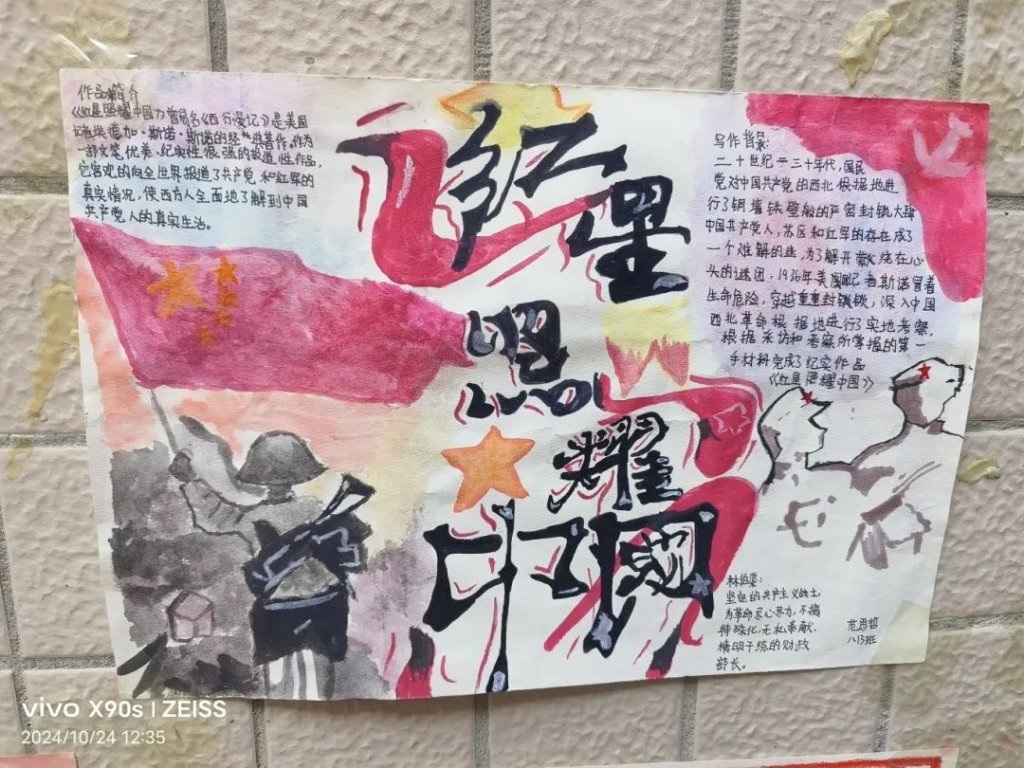 作品简介
《红星照耀中国》曾易名《西行漫记》是美国
记者埃德加·斯诺·斯诺的经典进著作。作为
一部文笔优美，纪实性很强的报道性作品，
它客观的向全世界报道了共产党和红军的
真实情况，使西方人全面地了解到中国
共产党人的真实生活。
红星
照
耀
中国
写作背景：
二十世纪二三十年代，国民
党对中国共产党的西北根据地进
行了铜墙铁壁般的严密封锁，大肆
中国共产党人，苏区和红军的存在成了
一个难解的迷，为了解开萦绕在心
头的谜团，1936年美国记者斯诺冒着
生命危险，穿越重重封锁线，深入中国
西北革命根据地进行了实地考察，
根据采访和考察所掌握的第一
手材料完成了纪实作品
《红星照耀中国》
林伯渠：
坚定的共产主义战士，
为革命尽心尽力，不搞
特殊化，无私奉献，
精明干练的财政
部长。
范思哲
八13班
vivo X90s | ZEISS
2024/10/24 12:35